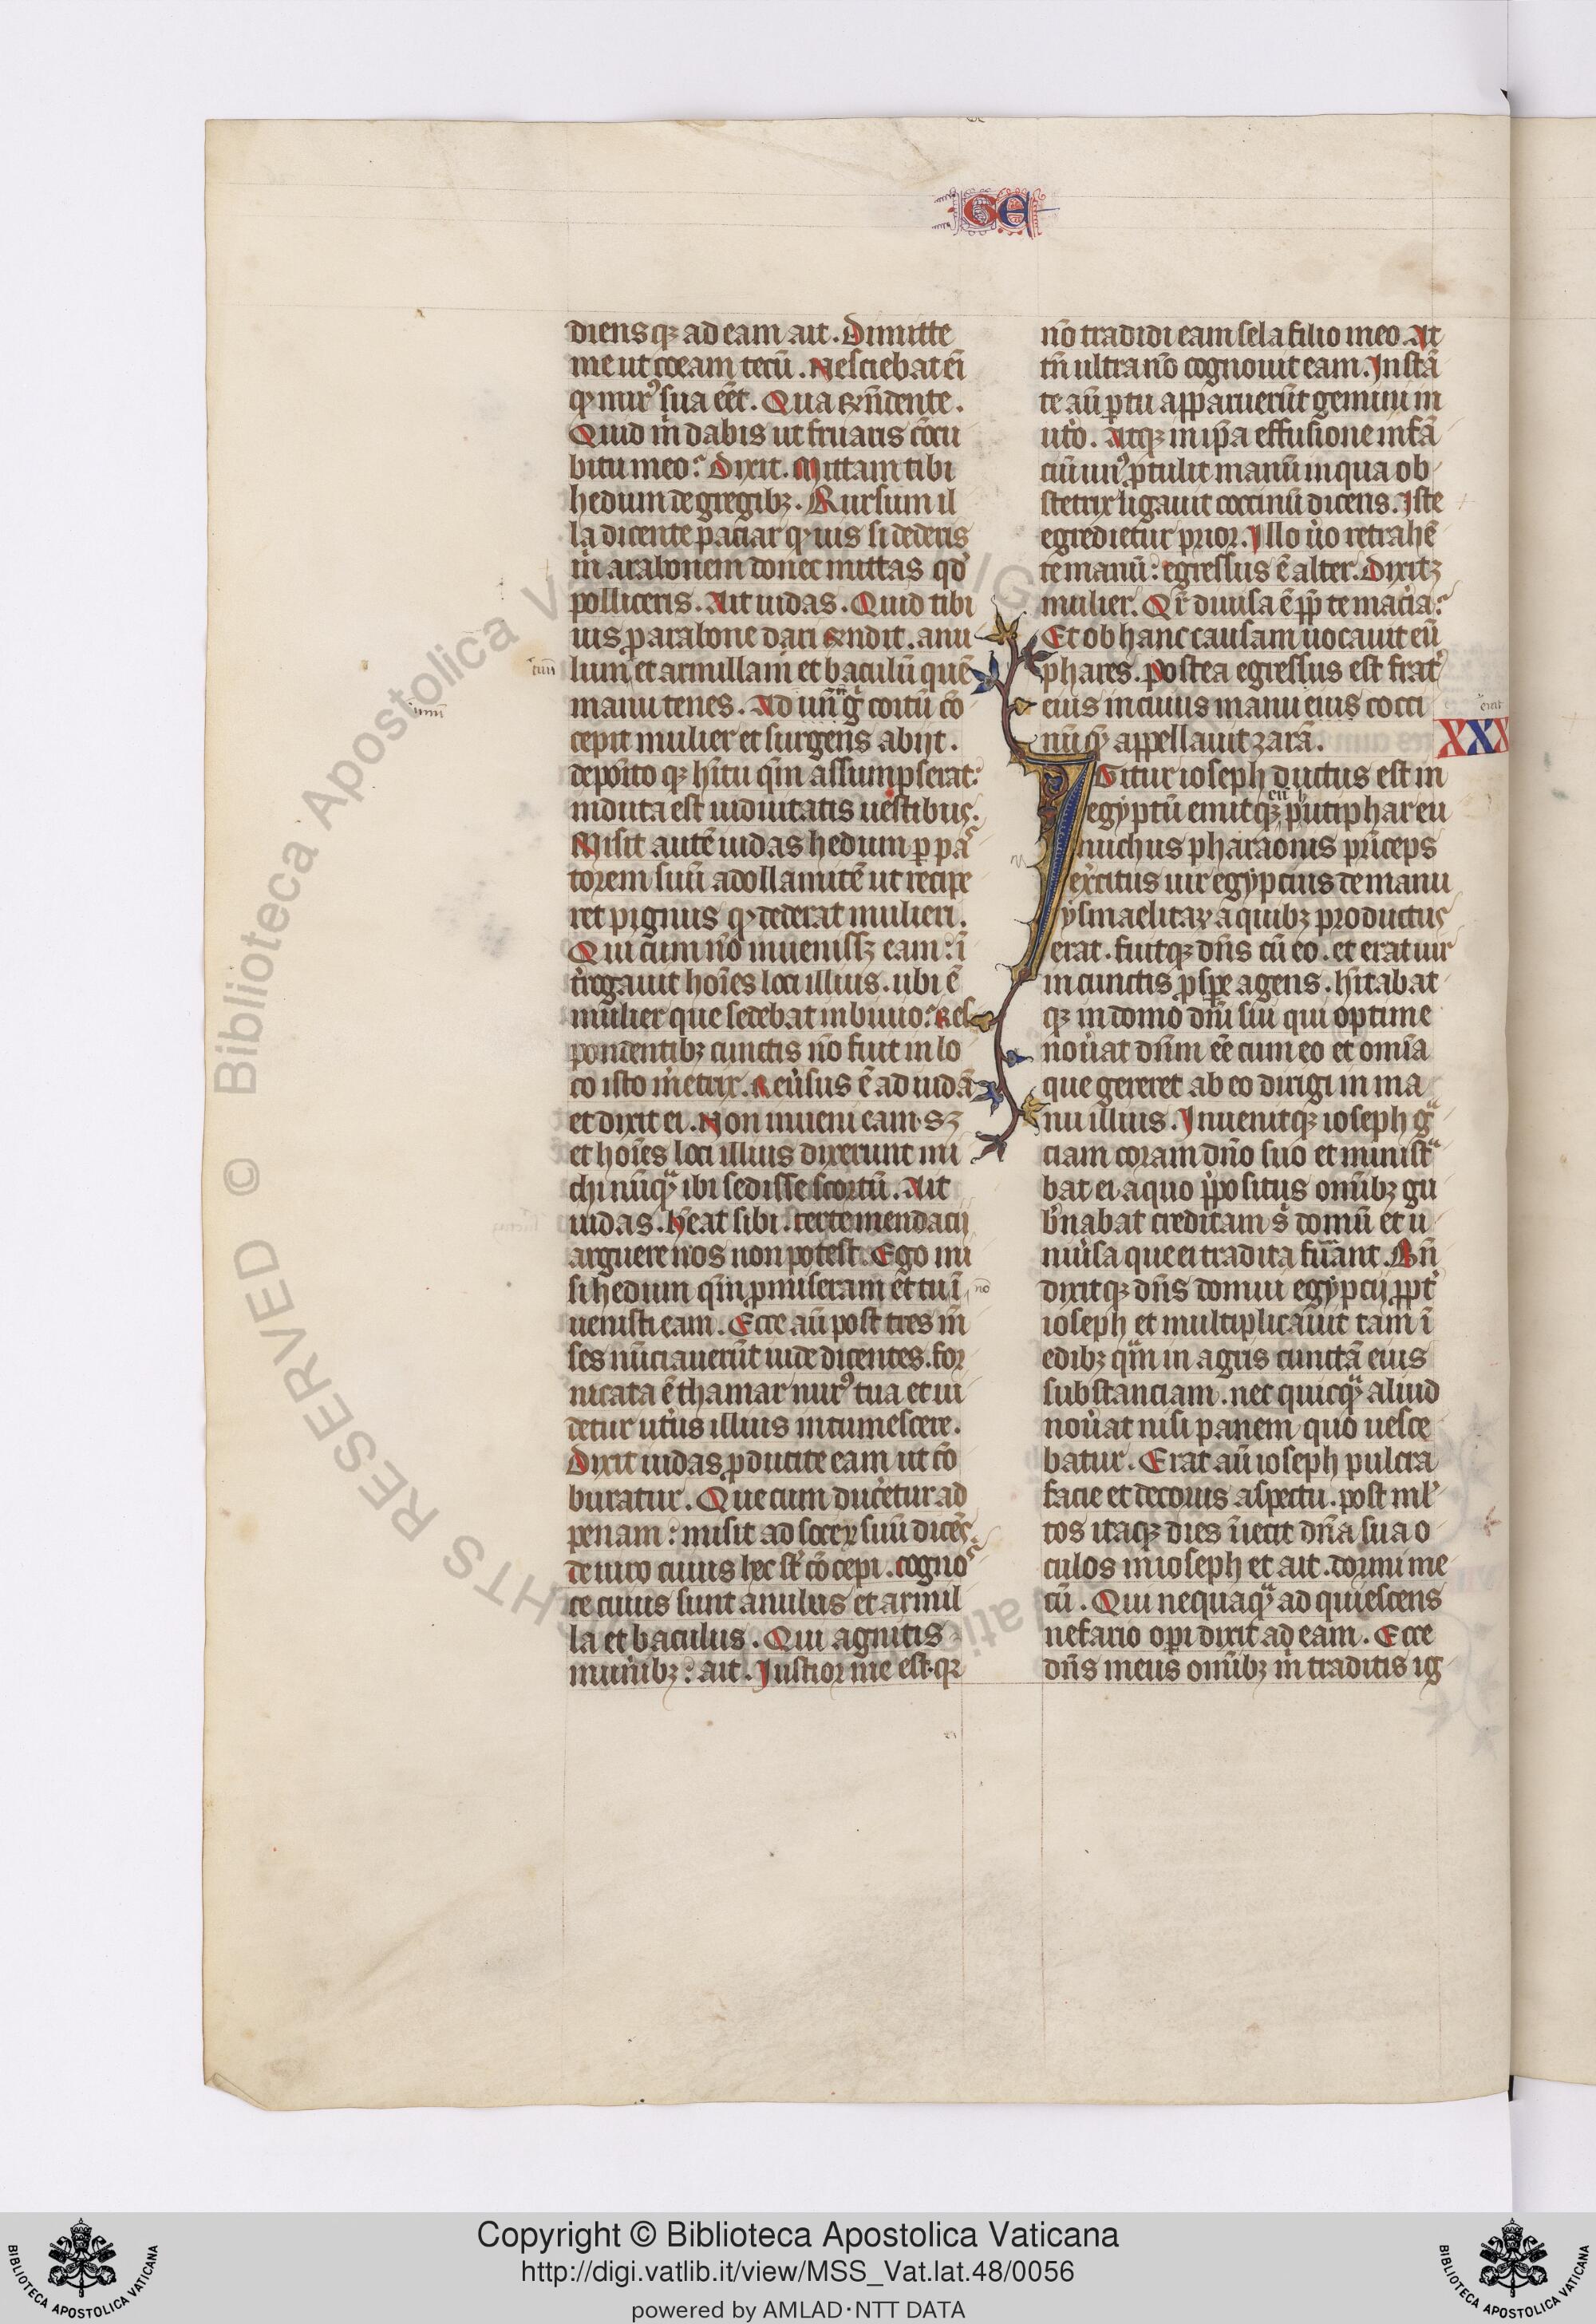 GE
diensqꝫ ad eam ait. Dimitte
me ut coeam tecū. Nesciebat eī
qꝫ nurꝰ sua eēt. Qua rn̄dente.
Quid m̄ dabis ut fruaris cōcu
bitu meo? Dixit. Mittam tibi
hedum de gregibꝫ. Rursum il
la dicente patiar qꝫ uis si dederis
m̄ arabonem donec mittas qd̓
polliceris. Ait iudas. Quid tibi
uis ꝓ arabone dari? rn̄dit. anu
lum et armillam et baculū quē
manu tenes. Ad un̄ gͦ coitū cō
cepit mulier et surgens abijt.
deposito qꝫ hītu q̄m assumpserat:
induta est uiduitatis uestibus.
Misit autē iudas hedum ꝑ pa
torem suū adollamitē ut recipe
ret pignus qꝫ dederat mulieri.
Qui cum nō inuenissꝫ eam: ī
t̓rogauit hoīes loci illius. ubi ē
mulier que sedebat in biuio? Res
pondentibꝫ cunctis nō fuit in lo
co isto m̓etrix. Reu̓sus ē ad iudā
et dixit ei. Non inueni eam. sꝫ
et hoīes loci illius dixerunt mi
chi nūqͣ ibi sedisse scortū. Ait
iudas. Hēat sibi. certe mendacij
arguere nos non potest. Ego mi
si hedum q̄m ꝓmiseram et tu ī
uenisti eam. Ecce aū post tres m̄
ses nūciauerūt iude dicentes. for
nicata ē thamar nurꝰ tua et ui
detur ut̓us illius intumescere.
Dixit iudas ꝓducite eam ut cō
buratur. Que cum duc̓etur ad
penam: misit ad socerꝝ suū dicēs.
de uiro cuius hec st̄ cōcepi. cogno
ce cuius sunt anulus et armil
la et baculus. Qui agnitis
mun̓ibꝫ: ait. Justior me est. qꝛ
tuū
nō
nō tradidi eam sela filio meo. At
tn̄ ultra nō cognouit eam. Instā
te aū ꝑtu apparuerūt gemini in
ut̓o. Atqꝫ in ip̄a effusione infā
ciū unꝰ ꝓtulit manū in qua ob
stetrix ligauit coccinū dicens. Iste
egredietur prior. Illo u̓o retrahē
te manū: egressus ē alter. Dixitꝫ
mulier. Qr̄ diuisa ē ꝓp̄ te mac̓ia?
Et ob hanc causam uocauit eū
phares. Postea egressus est frat̓
eius in cuius manu erat cocci
nū qꝫ appellauit zarā.
XXX
IGitur ioseph ductus est in
egyptū emitqꝫ eū putiphar eu
nuchus pharaonis p̓nceps
ex̓citus uir egyptius de manu
ysmaelitaꝝ a quibꝫ productus
erat. fuitqꝫ dn̄s cū eo. et erat uir
in cunctis ꝓspe agens. hītabat
qꝫ in domo dn̄i sui qui optime
nou̓at dn̄m eē cum eo et omīa
que gereret ab eo dirigi in ma
nu illius. Inuenitqꝫ ioseph gͣ
ciam coram dn̄o suo et ministͣ
bat ei. a quo p̓positus omībꝫ gu
b̓nabat creditam s̓ domū et u
niu̓sa que ei tradita fūant. Bn̄
dixitqꝫ dn̄s domui egyptij ꝓpt̓
ioseph et multiplicauit tam ī
edibꝫ qͣm in agris cunctā eius
substanciam. nec quicqͣ aliud
nou̓at nisi panem quo uesce
batur. Erat aū ioseph pulcra
facie et decorus aspectu. post ml̓
tos itaqꝫ dies iīecit dn̄a sua o
culos in ioseph et ait. dormi me
cū. Qui nequaqͣ adquiescens
nefario op̓i dixit ad eam. Ecce
dn̄s meus omībꝫ m̄ traditis ig
© Biblioteca Apostolica Vaticana
RIGHTS RESERVED
Copyright © Biblioteca Apostolica Vaticana
http://digi.vatlib.it/view/MSS_Vat.lat.48/0056
powered by AMLAD·NTT DATA
BIBLIOTECA APOSTOLICA VATICANA
BIBLIOTECA APOSTOLICA VATICANA